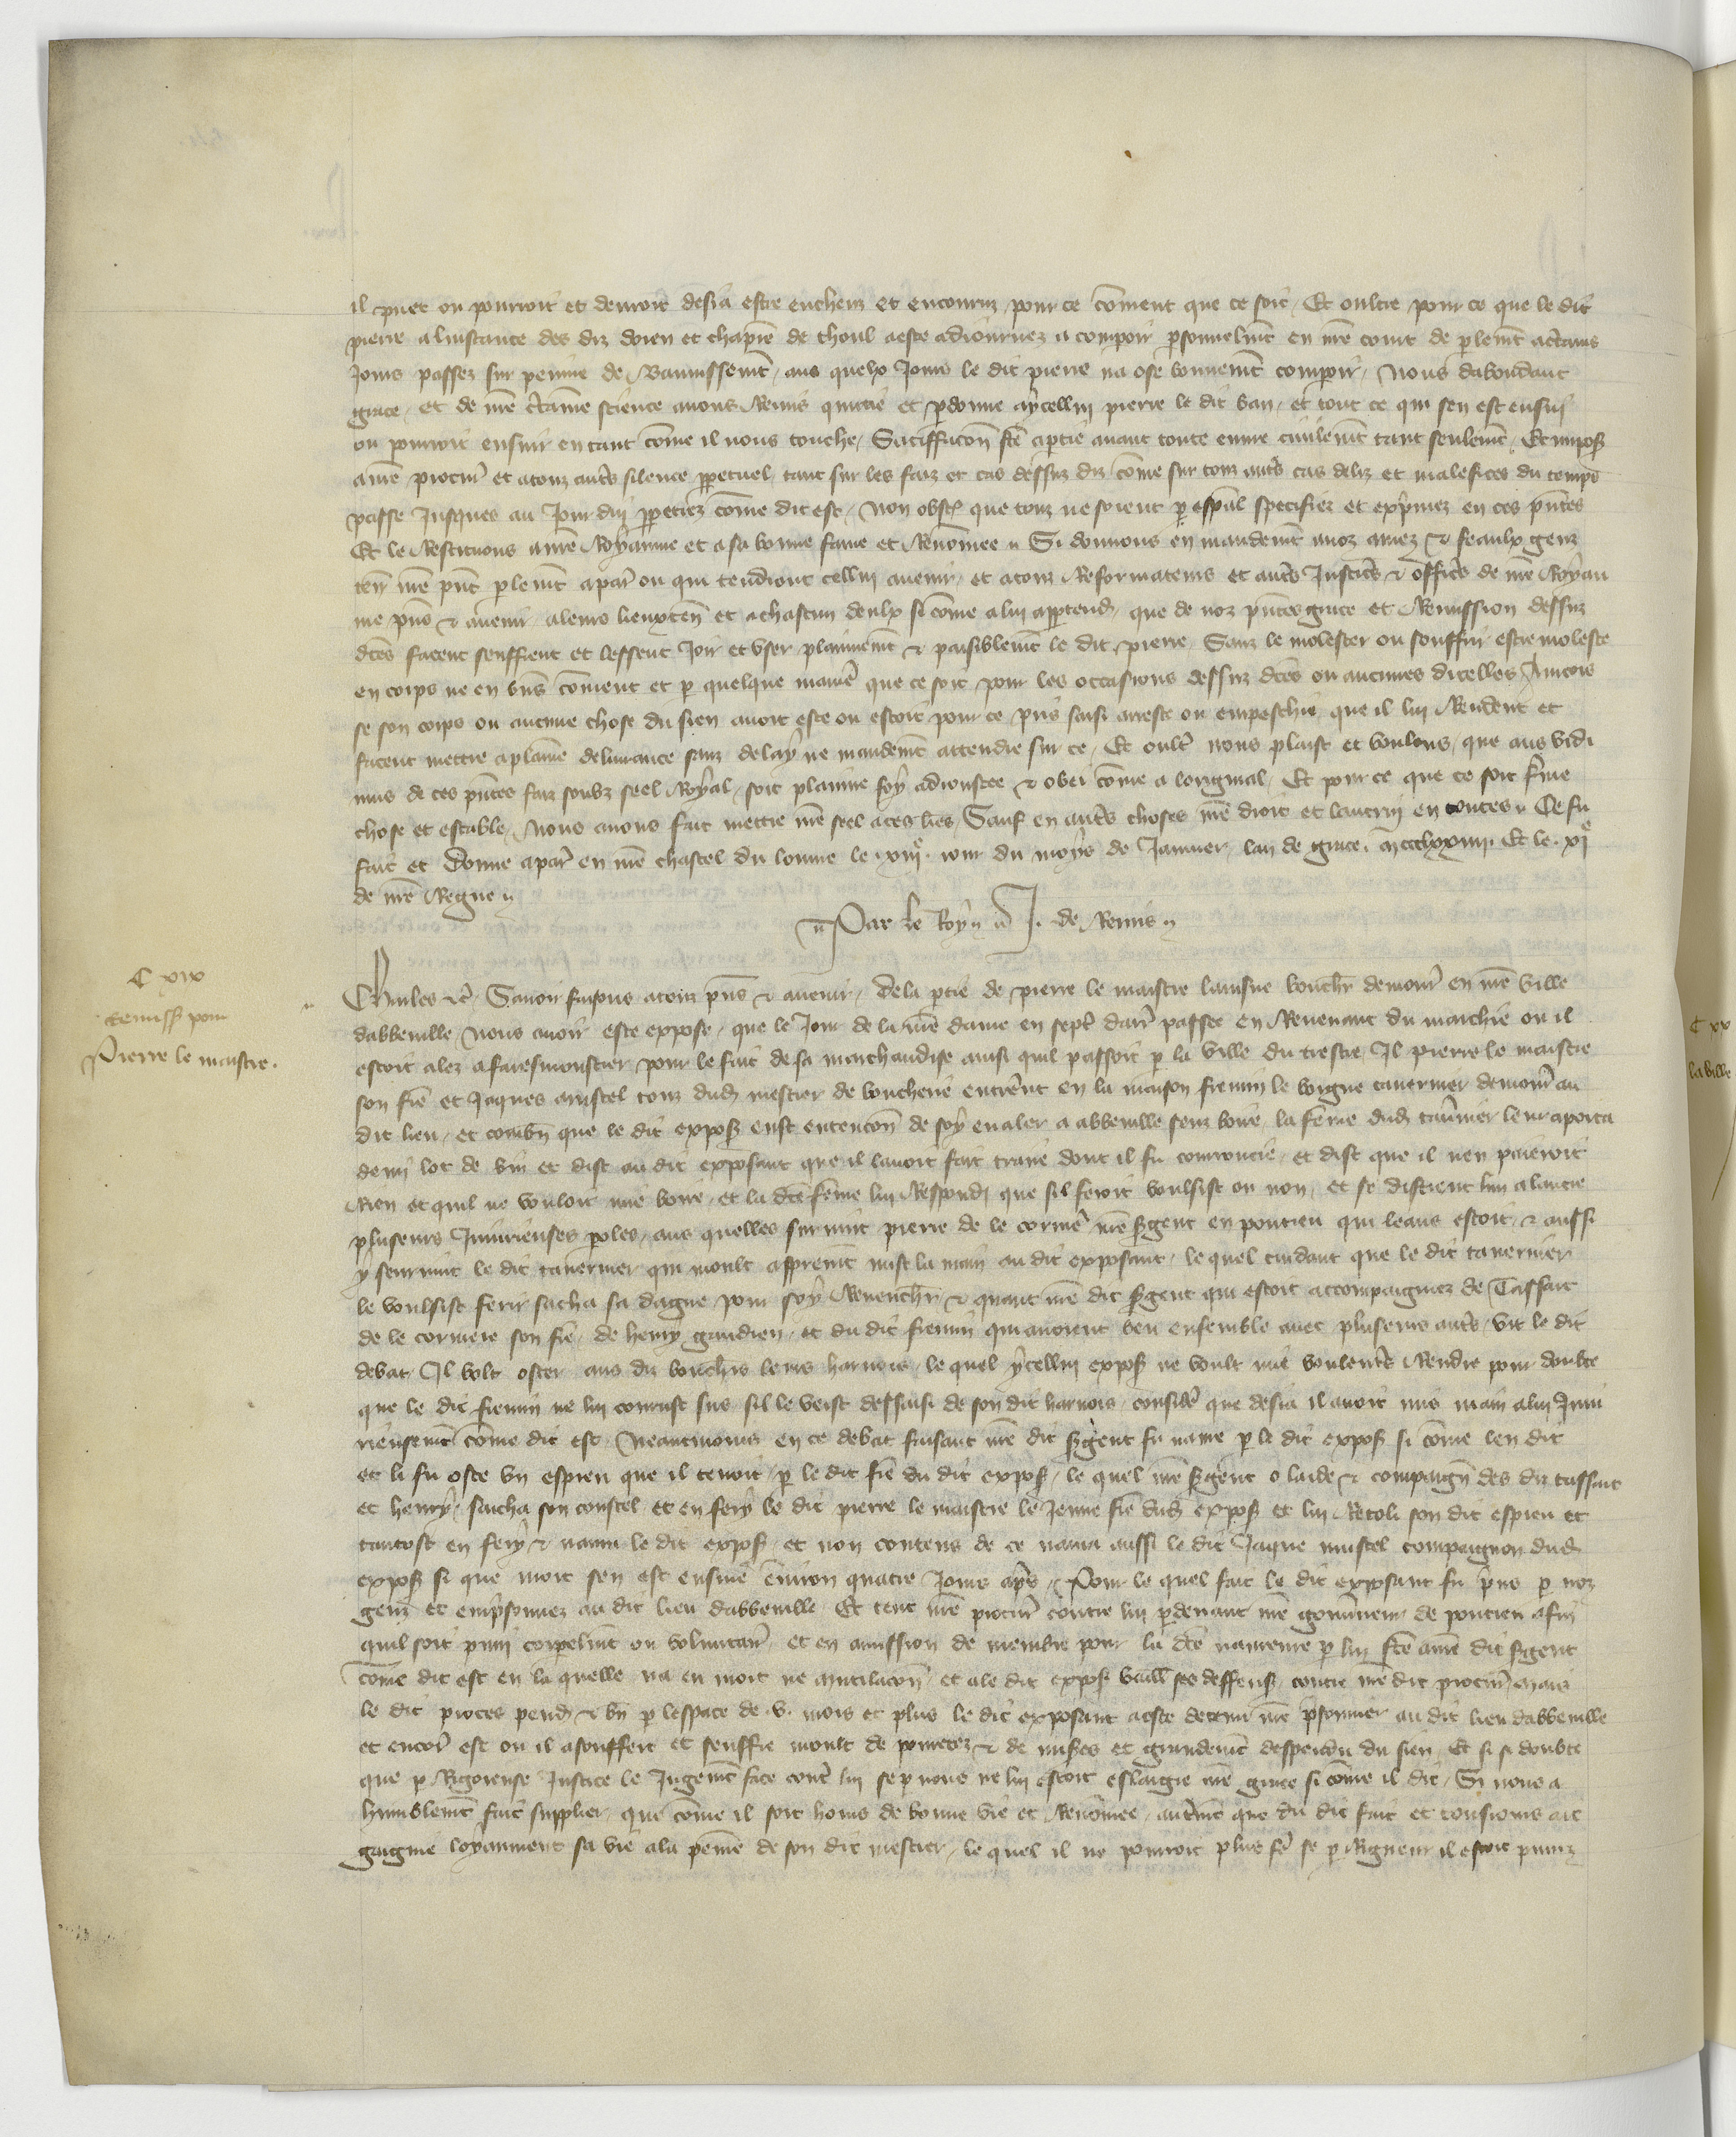 il puet ou pourroit et devroit desia estre encheuz et encouruz pour ce coment que ce soit / Et oultre pour ce que le dit
pierre a linstance des diz doien et chapitre de thoul a este adiournez a comparoir psonnelmt en nre court de plemt a ctains
Jours passez sur peinne de Bannissemt / aus quelx Jours le dit pierre na ose bonnemt comparoir / Nous dabondant
grace / et de nre ctaine science avons Remis quictie et pdonne a ycellui pierre le dit ban / et tout ce qui sen est ensui
ou pourroit ensuir en tant come il nous touche / Satiffacon fte a ptie avant toute euvre civilemt tant seulemt / Et imposs
a nre procur et a touz autres silence ppetuel / tant sur les faiz et cas dessuz diz come sur touz autres cas deliz et malefices du temps
passe Jusques au Jour dui ppetrez come dit est / Non obst que touz ne soient p espal specifiez et exprimez en ces pntes
Et le Restituons a nre Royaume et a sa bonne fame et Renomee // Si donnons en mandemt a noz amez & feaulx genz
ten nre pnt plemt a paris ou qui tendront cellui avenir / et a touz Reformateurs et autres Justic & offic de nre Royau
me pns & avenir / a leurs lieuxten et a chascun deulx si come a lui apptend / que de noz pntes grace et Remission dessuz
dctes facent seuffrent et lessent Joir et user plainemt & paisiblemt le dit pierre / Sanz le molester ou souffrir estre moleste
en corps ne en biens coment et p quelque maniere que ce soit pour les occasions dessuz dctes ou aucunes dicelles / Aincois
se son corps ou aucune chose du sien avoit este ou estoit pour ce pris saisi arreste ou empeschie / que il lui Rendent et
facent mettre a plaine delivrance sanz delay ne mandemt attendre sur ce / Et oult nous plaist et voulons / que aus vidi
mus de ces pntes faiz soubz seel Royal / soit plainne foy adioustee & obei come a loriginal / Et pour ce que ce soit ferme
chose et estable / Nous avons fait mettre nre seel a ces lres / Sauf en autres choses nre droit et lautrui en toutes // Ce fu
fait et donne a paris en nre chastel du louvre le .xiije. iour du moys de Janvier / lan de grace. mccclxxiiij. Et le .xje
de nre Regne //
// Par le Roy // J. de Remis //
C xix
Remiss pour
Pierre le maistre.
Charles etc / Savoir faisons a touz pns & avenir / de la ptie de pierre le maistre lainsne bouchr demour en nre ville
dabbeville / nous avoir este expose / que le Jour de la nre dame en septe darr passee en Revenant du marchie ou il
estoit alez a faresmoustier pour le fait de sa marchandise ainsi quil passoit p la ville du crestre / Il pierre le maistre
son fre et Jaques mistel touz dud mestier de boucherie entrent en la maison fremin le borgne tavernier demour au
dit lieu / et combn que le dit exposs eust entencon de soy en aler a abbeville senz boire / la feme dud tavnier leur aporta
demi lot de vin et dist au dit exposant que il lavoit fait traire dont il fu courroucie / et dist que il nen paieroit
Rien et quil ne vouloit mie boire / et la dcte feme lui Respond que si feroit voulsist ou non / et se distrent lun a lautre
pluseurs Iniurieuses poles / aus quelles survint pierre de le cormer nre sgent en pontieu qui leans estoit / & aussi
y seurvint le dit tavernier qui moult asprement mist la main au dit exposant / le quel cuidant que le dit tavernier
le voulsist ferir sacha sa dague pour soy Revenchr / & quant nre dit sgent qui estoit accompaignez de Tassart
de le cormere son fre / de henry gaudien / et du dit fremin qui avoient beu ensemble avec pluseurs autres / vit le dit
debat / Il volt oster aus diz bouchrs leurs harnois / le quel ycellui exposs ne voult mie voulentr Rendre pour doubte
que le dit fremin ne lui courust sus sil le veist dessaisi de son dit harnois / consider que desia il avoit mis main a lui Iniu
rieusemt come dit est / Neantmoins en ce debat faisant nre dit sgent fu navre p le dit exposs si come len dit
et li fu oste un espieu que il tenoit / p le dit fre du dit exposs / le quel nre sgent o laide & compaign des diz tassart
et henry / sacha son coustel et en fery le dit pierre le maistre le Jeune fre dud exposs et lui Retoli son dit espieu et
tantost en fery & navra le dit exposs / et non contens de ce navra aussi le dit Jaque mistel compaignon dud
exposs si que mort sen est ensuivie environ quatre Jours aps / Pour le quel fait le dit exposant fu pris p noz
genz et emprisonnez au dit lieu dabbeville / Et tent nre procur contre lui pdevant nre gouvneur de pontieu afin
quil soit puni corpelmt ou voluntair / et en amission de membre pour la dcte navreure p lui fte a nre dit sgent
come dit est en la quelle na eu mort ne mutilacon / et a le dit exposs baill ses deffens contre nre dit procur / Mais
le dit proces pend & bn p lespace de .v. mois et plus le dit exposant a este detenu nre prisonnier au dit lieu dabbeville
et encor est ou il a souffert et seuffre moult de povretez & de miseres et grandemt despendu du sien / Et si se doubte
que p Rigoreuse Justice le Jugemt face contr lui se p nous ne lui estoit eslargie nre grace si come il dit / Si nous a
humblemt fait supplier / que come il soit homs de bonne vie et Renomee / autremt que du dit fait et tousiours ait
gaignie loyaument sa vie a la peine de son dit mestier / le quel il ne pourroit plus fe se p Rigueur il estoit puniz
C xx
la ville